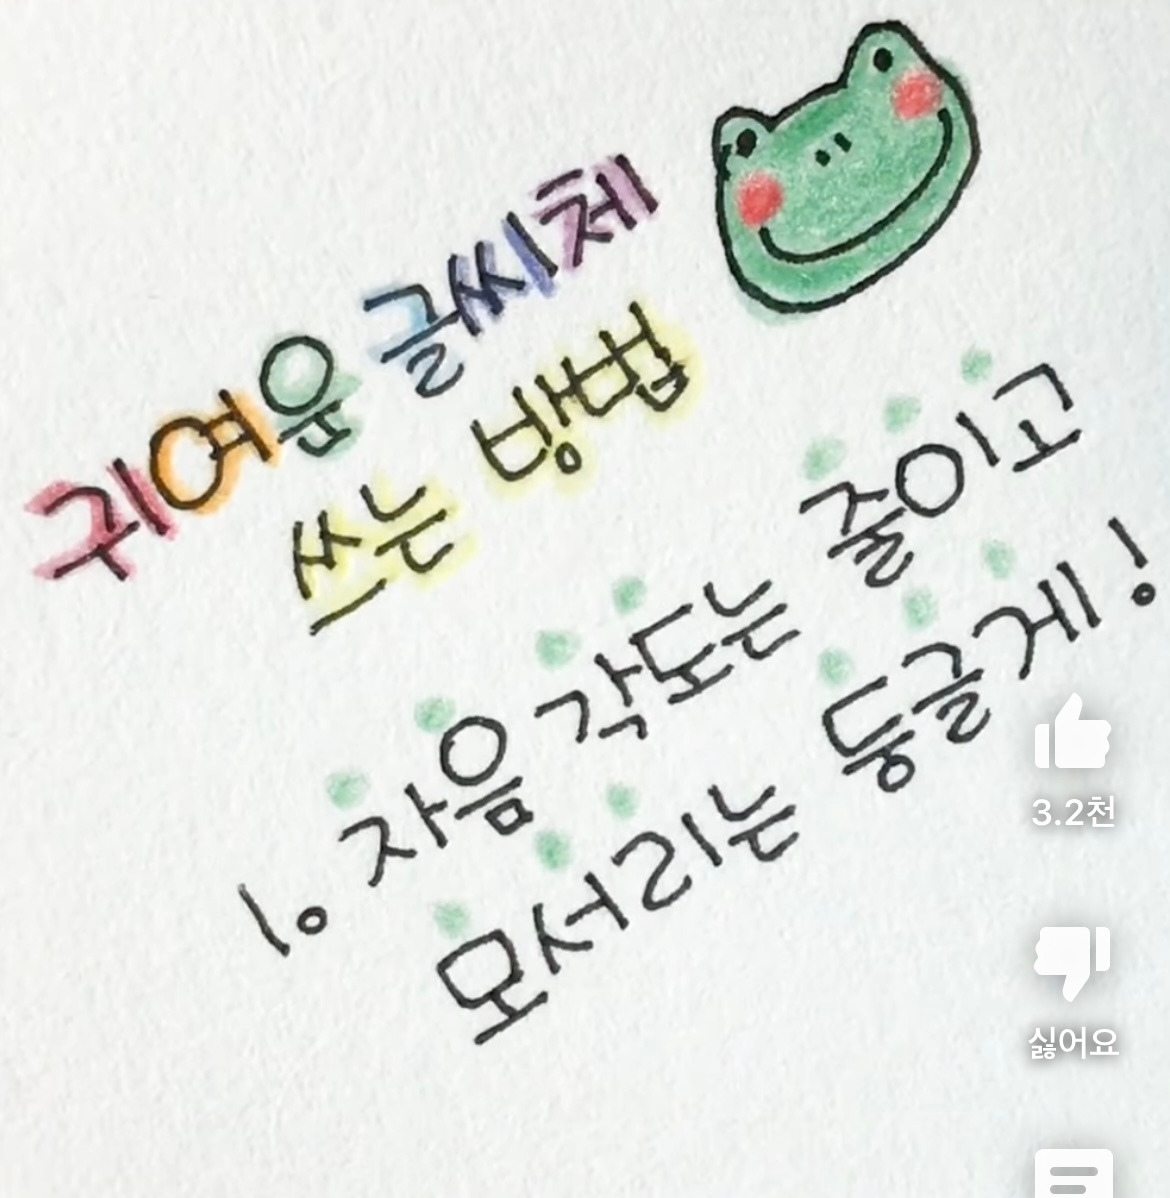 귀여운 글씨체
쓰는 방법
1. 자음 각도는 줄이고
모서리는 둥글게!
3.2천
싫어요